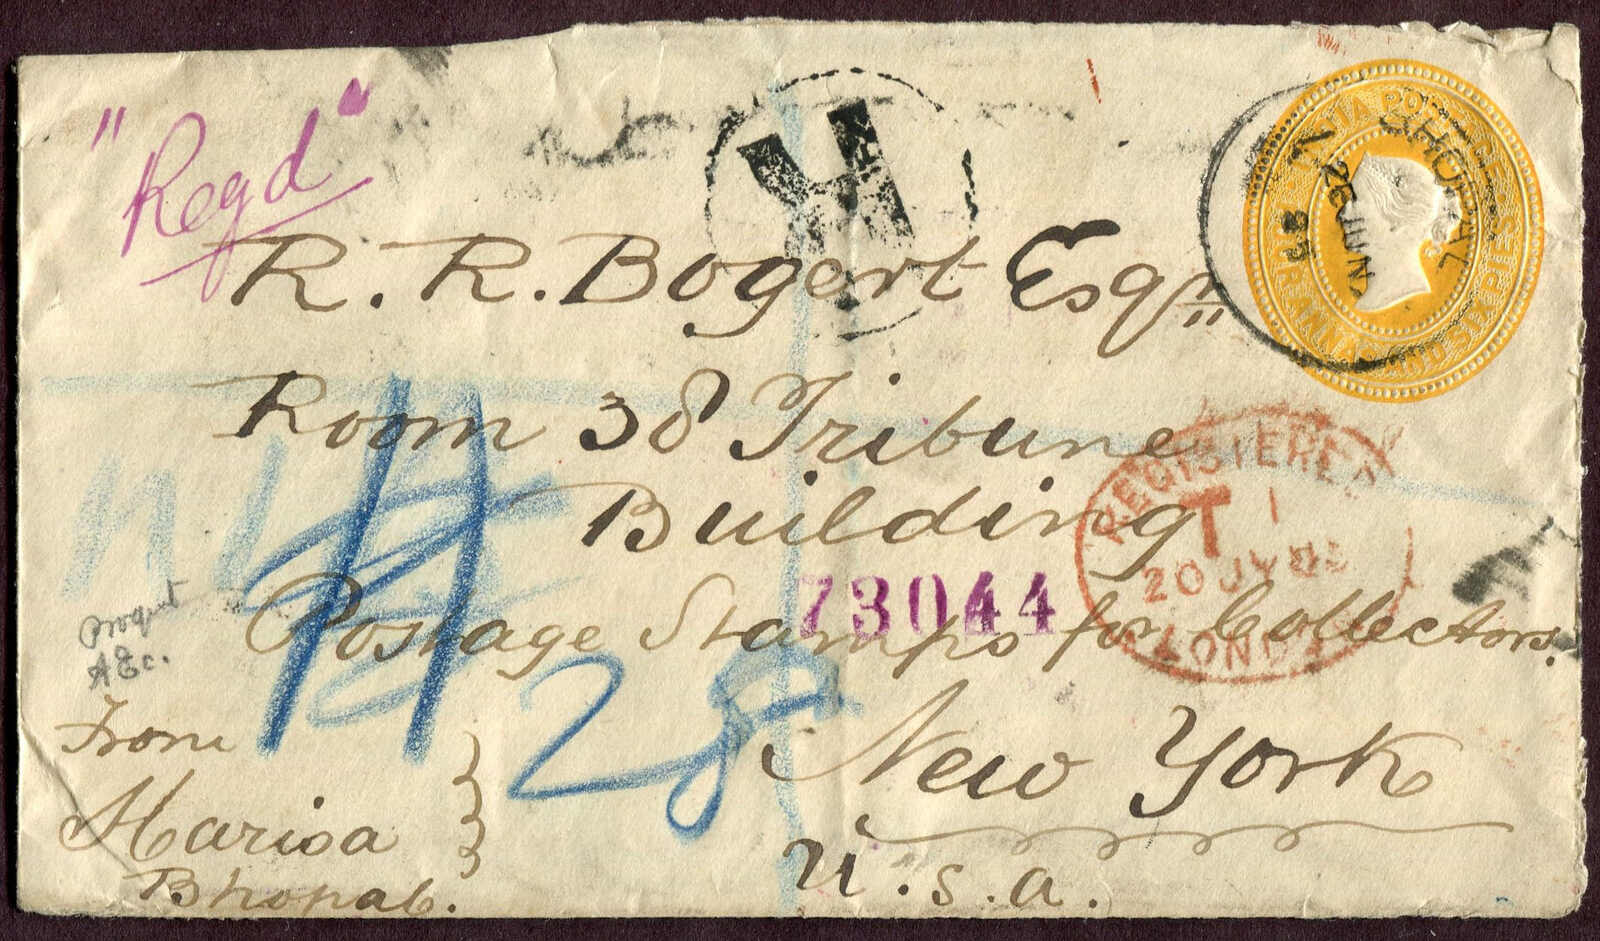 "Regd"
R
BHOPAL
JUN
INDIA POSTAGE
FOUR ANNAS AND SIX PIES
R. R. Bogert Esqr
Room 38 Tribune
Building
REGISTERED
T 1
20 JY
LONDON
73044
Postage Stamps for Collectors.
28
New York
U.S.a.
From
Marisa
Bhopal.